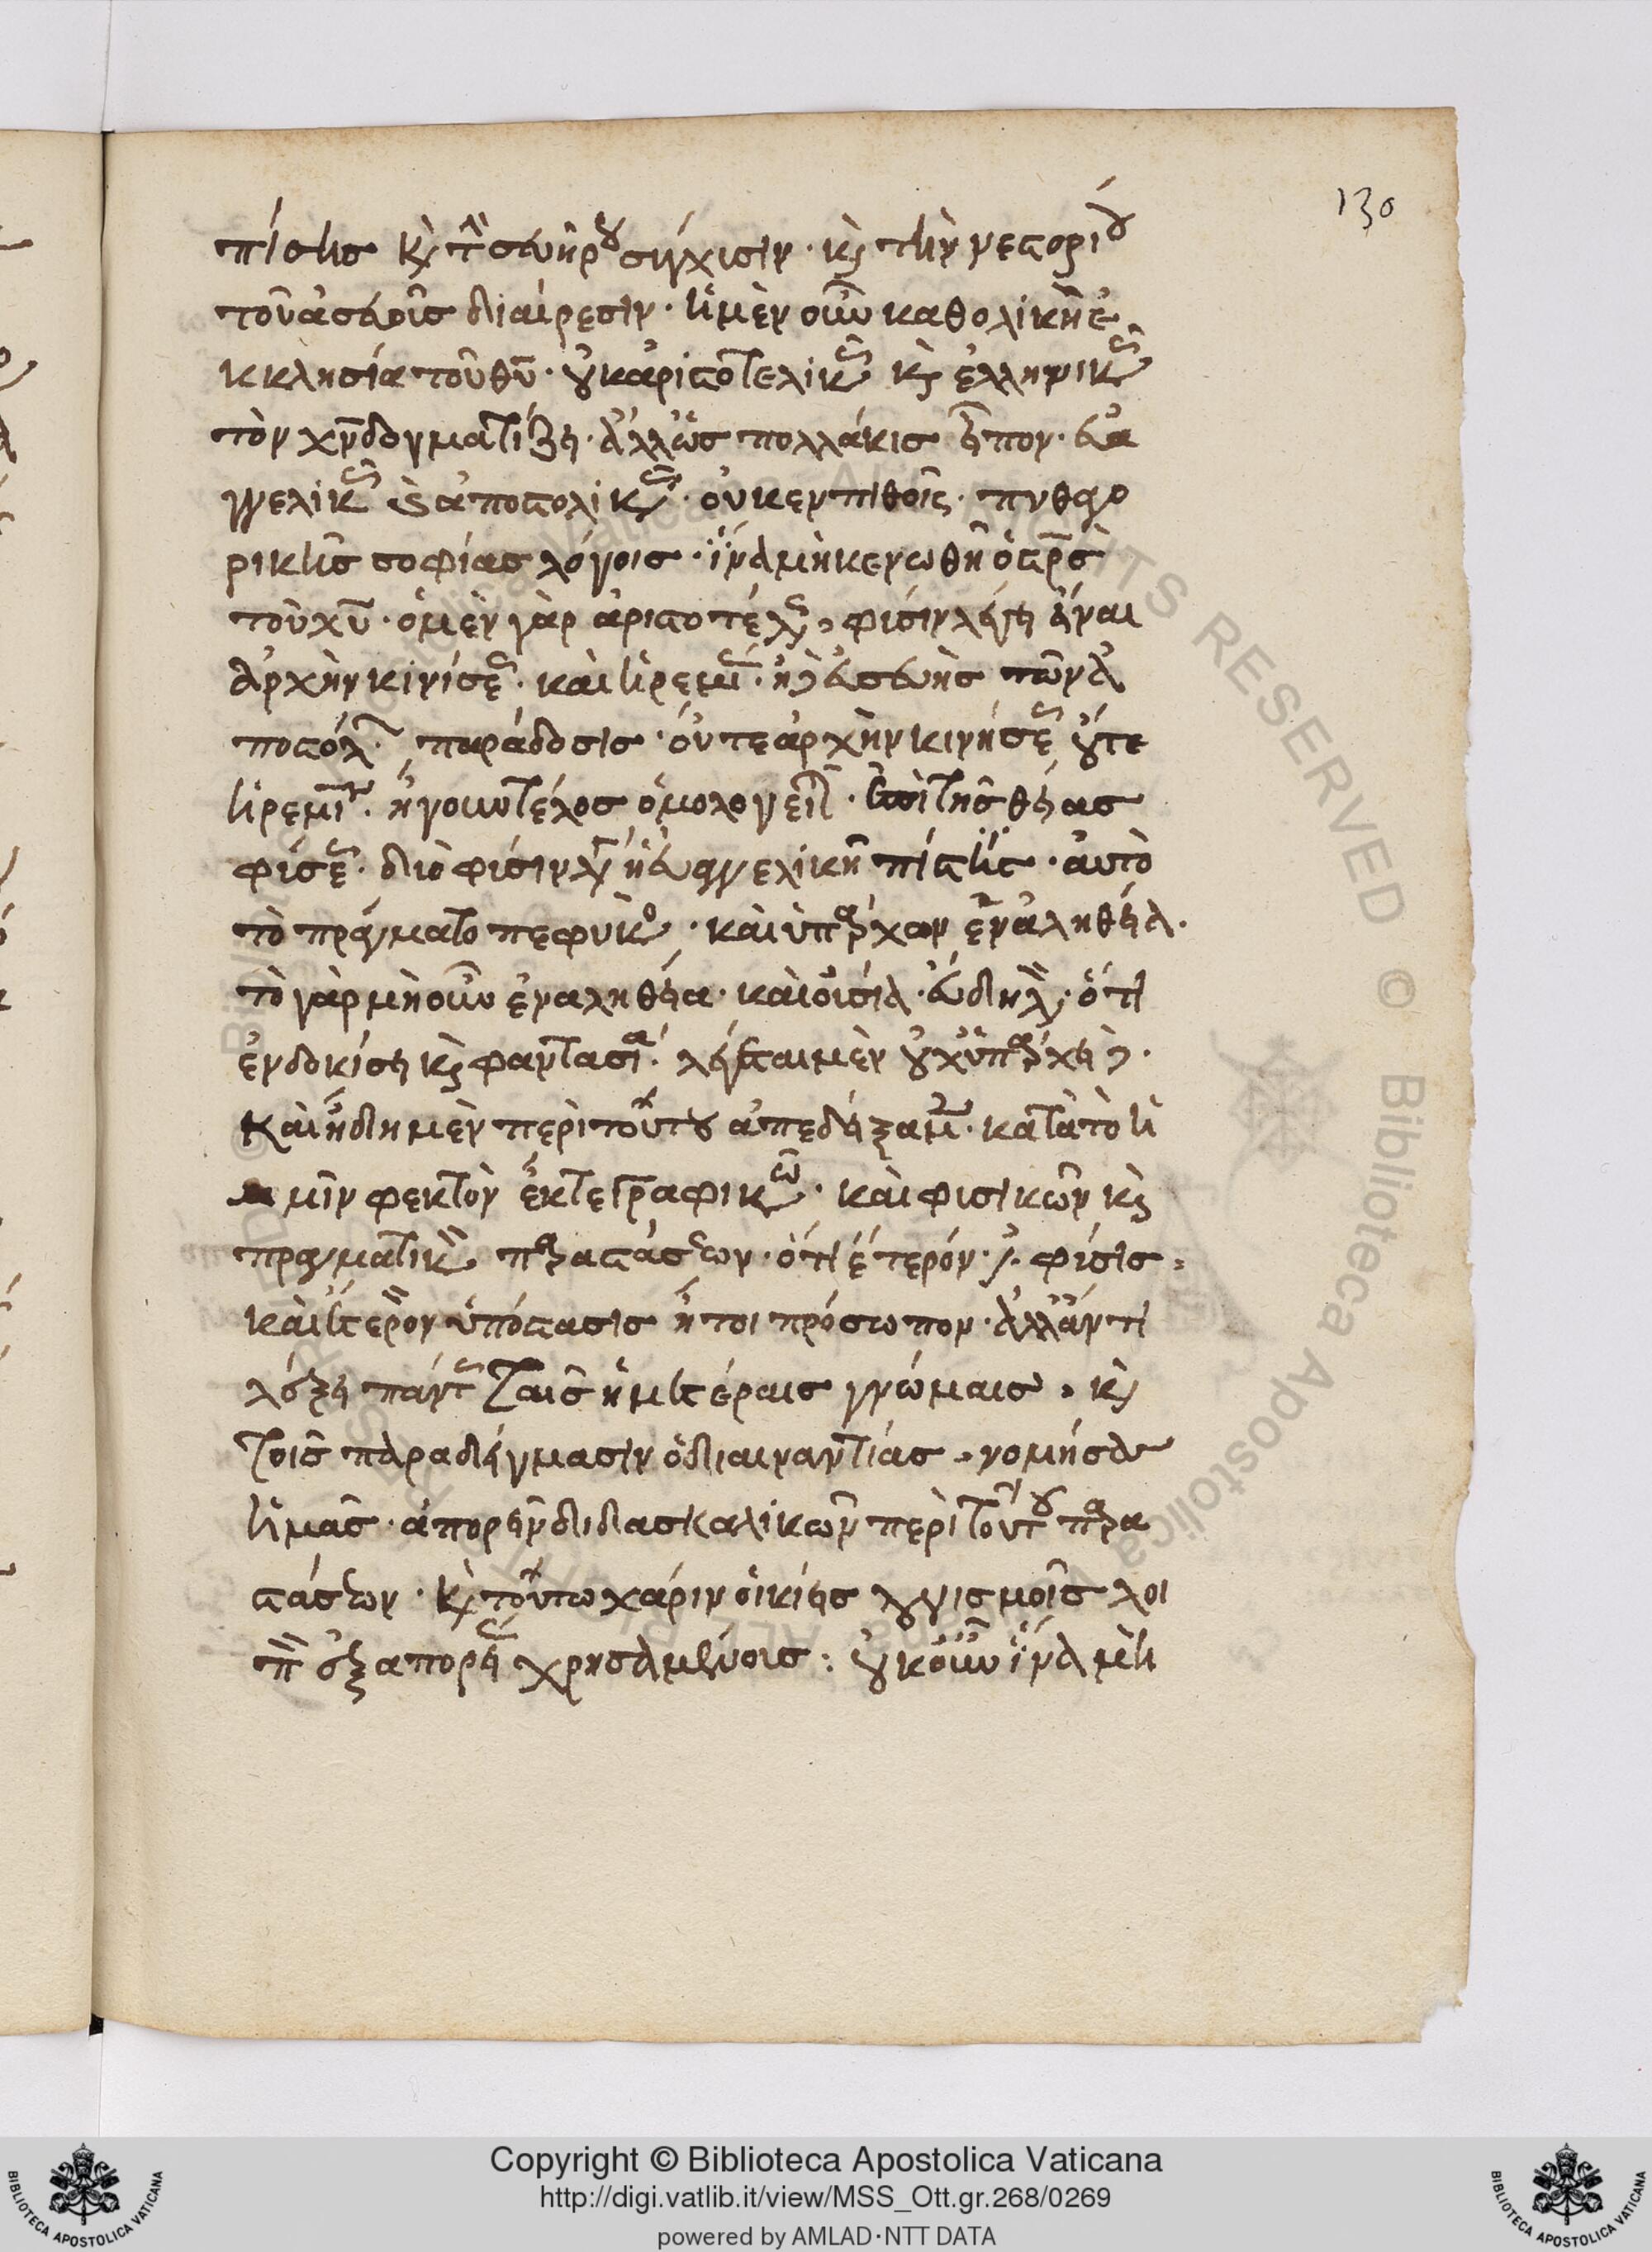 130
πίστις κ(αὶ) τὴν σευήρου σύγχισιν · κ(αὶ) τὴν νεστορίου
τοῦ ἀσεβοῦς διαίρεσιν · ἡ μὲν οὖν καθολικὴ ἐ
κκλησία τοῦ θ̅υ̅ · οὐκ ἀριστοτελικῶς κ(αὶ) ἑλληνικῶς
τὸν χ̅ν̅ δογματίζει · ἀλλ' ὡς πολλάκις εἶπον · εὐα
γγελικῶς καὶ ἀποστολικῶς · οὐκ ἐν πιθοῖς · πυθαγο
ρικῆς σοφίας λόγοις · ἵνα μὴ κενωθῆ ὁ σ̅ρ̅ς
τοῦ χ̅υ̅ · ὁ μὲν γὰρ ἀριστοτέλης, φύσιν λέγει εἶναι
ἀρχὴν κινίσεως · καὶ ἠρεμίας · ἡ δὲ εὐσεβὴς τῶν ἀ
ποστόλων παράδοσις · οὔτε ἀρχὴν κινήσεως οὔτε
ἠρεμίαν · ἤγουν τέλος ὁμολογεῖ · ἐπὶ τῆς θείας
φύσεως · διὸ φύσιν λέγει ἡ εὐαγγελικὴ πίστις · αὐτὸ
τὸ πρᾶγμα τὸ πεφυκὸς · καὶ ὑπάρχον ἐν ἀληθεία ·
τὸ γὰρ μὴ ὂν ἐν ἀληθεία · καὶ οὐσία · εὔδηλον · ὅτι
ἐν δοκίσει κ(αὶ) φαντασία · λέγεται μὲν οὐχ ὑπάρχει δὲ ·
καὶ ἤδη μὲν περὶ τούτου ἀπεδείξαμεν · κατὰ τὸ ἡ
μῖν φεκτὸν ἔκ τε γραφικῶν · καὶ φισικῶν κ(αὶ)
πραγματικῶν παραστάσεων · ὅτι ἕτερόν ἐστι φύσις ,
καὶ ἕτερον ὑπόστασις ἤτοι πρόσωπον · ἀλλ' ἀντι
λέξει πάντως ταῖς ἡμετέραις γνώμαις , κ(αὶ)
τοῖς παραδείγμασιν ὁ δι' ἐναντίας , νομήσας
ἡμᾶς · ἀπορεῖν διδασκαλικῶν περὶ τούτου παρα
στάσεων · κ(αὶ) τούτου χάριν οἰκίεις λογισμοῖς λοι
πὸν ἐξ ἀπορείας χρησαμένοις : οὐκοῦν ἵνα μὴ
Copyright © Biblioteca Apostolica Vaticana
http://digi.vatlib.it/view/MSS_Ott.gr.268/0269
powered by AMLAD·NTT DATA